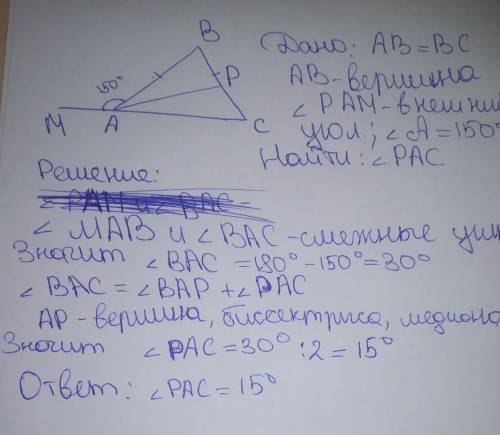 B
150°
P
M
A
C
Дано: AB=BC
AB-вершина
∠ PAM-внешний
угол; ∠A=150°
Найти: ∠PAC.
Решение:
∠ MAB и ∠BAC-смежные
Значит ∠BAC =180°-150°=30°
∠ BAC = ∠BAP +∠PAC
AP - вершина, биссектриса, медиана
Значит ∠PAC=30°:2=15°
Ответ: ∠PAC=15°